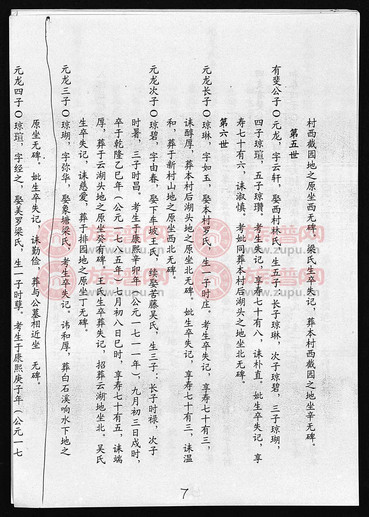 村西截园地之原坐西无碑。梁氏生卒失记，葬本村西截园之地坐辛无碑。
第五世
有斐公子〇元龙，字云轩，娶西村林氏，生五子，长子琼琳，次子琼碧，三子琼瑚，
四子琼瑄，五子琼瓒。考生卒失记，享寿七十有八，诔朴直。妣生卒失记，享
寿七十有六，诔淑慎。考妣同葬本村后湖头之地坐北无碑。
第六世
元龙长子〇琼琳，字如玉，娶本村罗氏，生一子时庄。考生卒失记，享寿七十有三，
诔醇厚，葬本村后湖头地之原坐北无碑。妣生卒失记，享寿七十有三，诔温
和，葬于新村山地之原坐西北无碑。
元龙次子〇琼碧，字由春，娶下车坡王氏，续娶苦藤吴氏，生三子：长子时禄，次子
时暑，三子时昌。考生于康熙辛卯年（公元一七一一年）九月初三日戌时，
卒于乾隆乙巳年（公元一七八五年）七月初八日巳时，享寿七十有五，诔端
厚，葬于云湖头地之原坐癸有碑。王氏生卒葬失记，招葬云湖地坐北。吴氏
生卒失记，诔慈爱，葬于排园地之原坐丁无碑。
元龙三子〇琼瑚，字弥华，娶象塘梁氏，考生卒失记，讳和厚，葬白石溪响水下地之
原坐无碑。妣生卒失记，诔勤俭，葬与公墓相近坐　无碑。
元龙四子〇琼瑄，字经之，娶美罗梁氏，生一子时尊。考生于康熙庚子年（公元一七
7
族谱网
www.zupu.cn